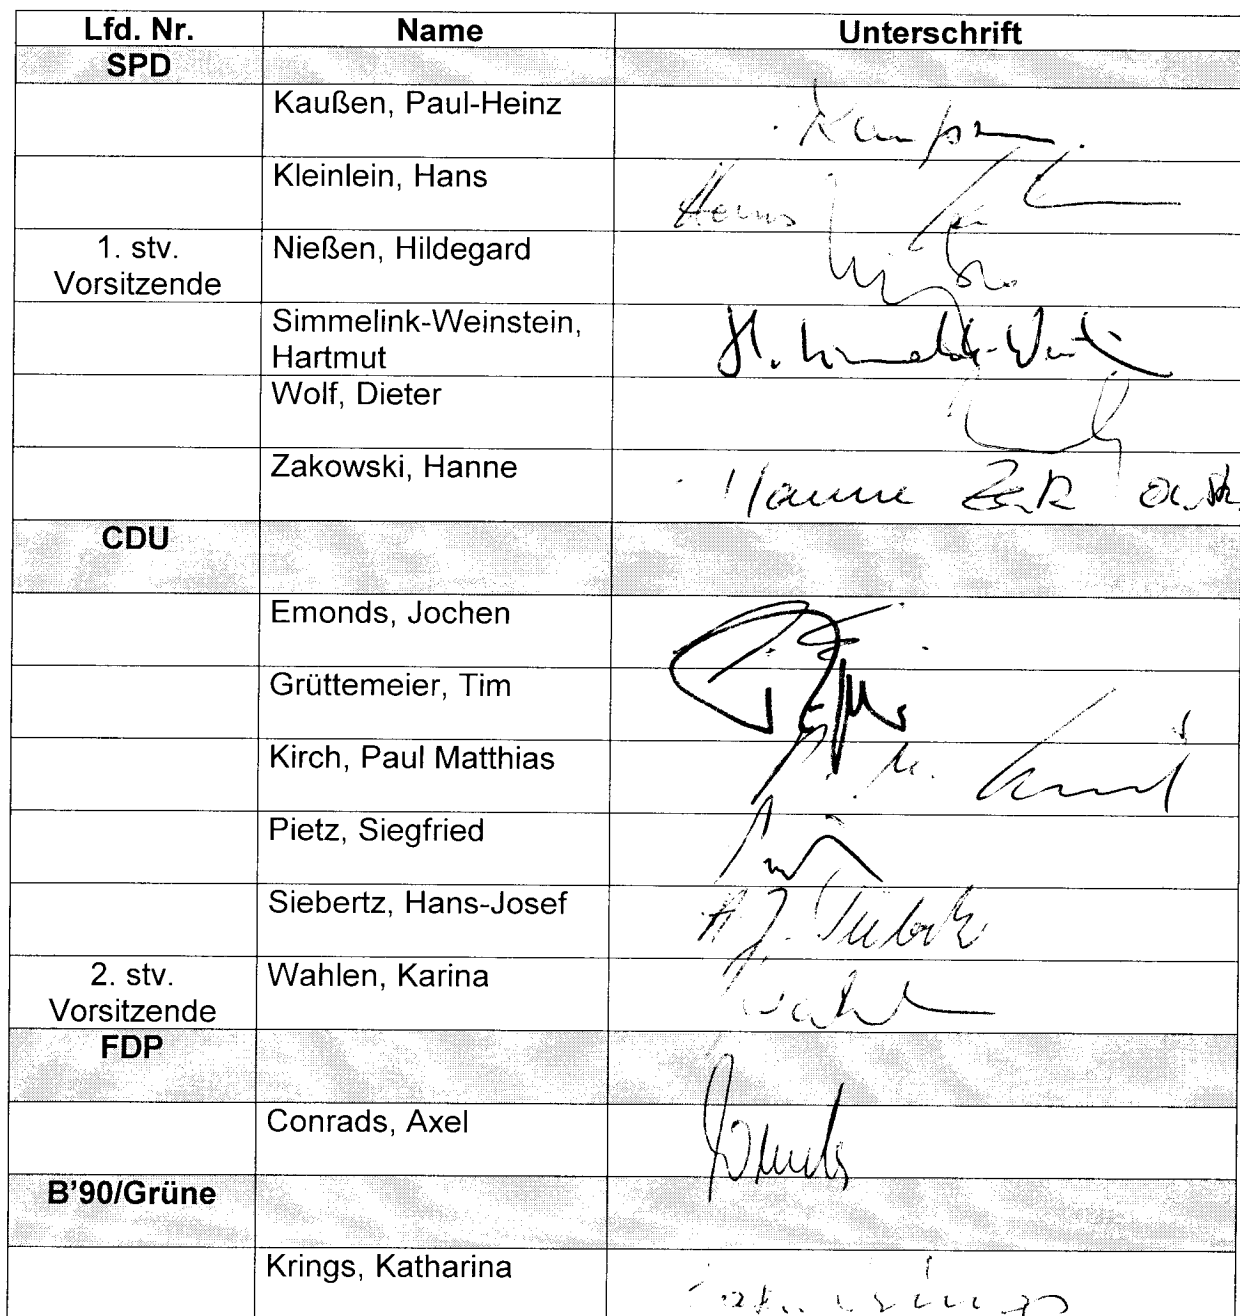 Lfd. Nr. Name Unterschrift
SPD
Kaußen, Paul-Heinz
Kleinlein, Hans Hans
1. stv. Vorsitzende Nießen, Hildegard
Simmelink-Weinstein, Hartmut H.
Wolf, Dieter
Zakowski, Hanne Hanne
CDU
Emonds, Jochen J. E.
Grüttemeier, Tim
Kirch, Paul Matthias P. M. Kirch
Pietz, Siegfried
Siebertz, Hans-Josef H. J. Siebertz
2. stv. Vorsitzende Wahlen, Karina
FDP
Conrads, Axel
B’90/Grüne
Krings, Katharina